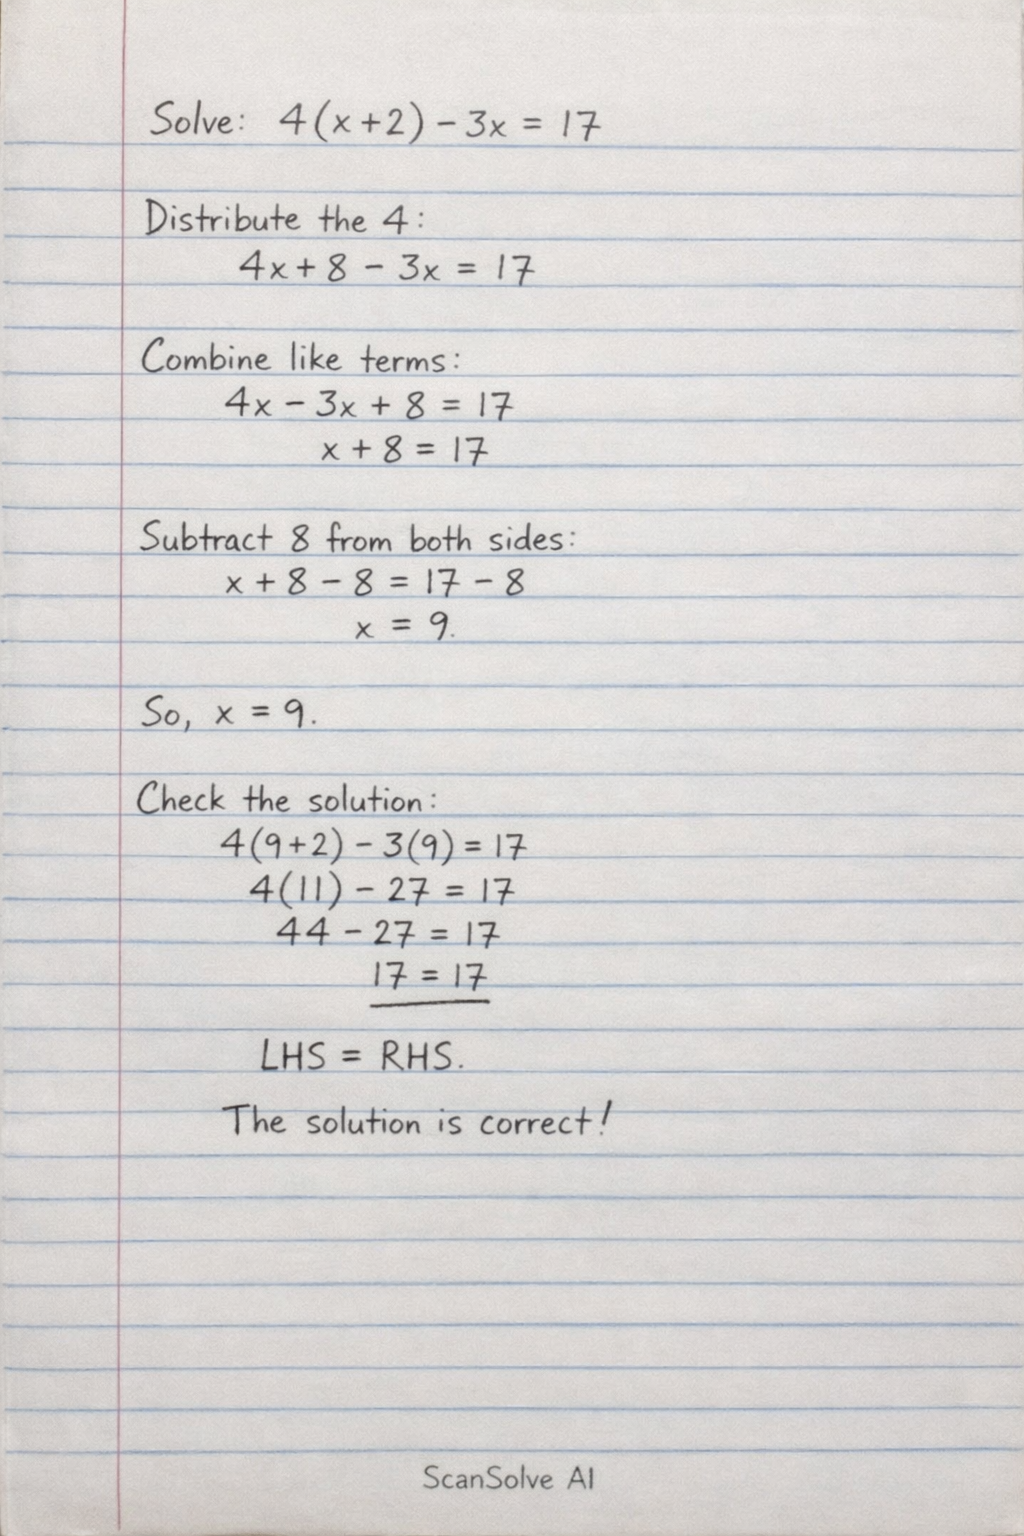 Solve: 4(x+2) - 3x = 17
Distribute the 4:
4x + 8 - 3x = 17
Combine like terms:
4x - 3x + 8 = 17
x + 8 = 17
Subtract 8 from both sides:
x + 8 - 8 = 17 - 8
x = 9.
So, x = 9.
Check the solution:
4(9+2) - 3(9) = 17
4(11) - 27 = 17
44 - 27 = 17
17 = 17
LHS = RHS.
The solution is correct!
ScanSolve AI